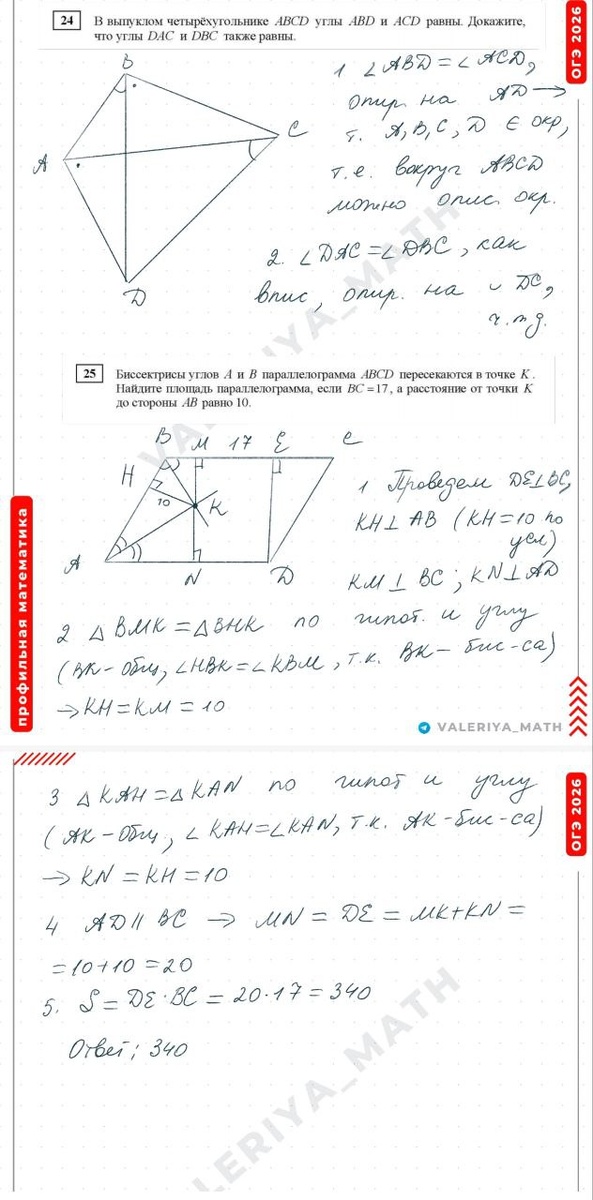 24 В выпуклом четырёхугольнике ABCD углы ABD и ACD равны. Докажите,
что углы DAC и DBC также равны.
ОГЭ 2026
B
A
C
D
1 ∠ABD = ∠ACD,
опир. на AD →
т. A, B, C, D ∈ окр,
т.е. вокруг ABCD
можно опис. окр.
2. ∠DAC = ∠DBC, как
впис, опир. на ◡ DC,
ч.т.д.
25 Биссектрисы углов A и B параллелограмма ABCD пересекаются в точке K.
Найдите площадь параллелограмма, если BC = 17, а расстояние от точки K
до стороны AB равно 10.
B M 17 E C
H
10
K
A
N
D
1 Проведем DE⊥BC,
KH⊥ AB (KH = 10 по
усл)
KM ⊥ BC ; KN⊥AD
2 △ BMK = △BHK по гипот. и углу
(BK - общ, ∠HBK = ∠KBM, т.к. BK - бис-са)
→ KH = KM = 10
профильная математика
VALERIYA_MATH
VALERIYA_MATH
ОГЭ 2026
3 △ KAH = △KAN по гипот и углу
(AK - общ, ∠ KAH = ∠KAN, т.к. AK - бис-са)
→ KN = KH = 10
4 AD || BC → MN = DE = MK + KN =
= 10 + 10 = 20
5. S = DE · BC = 20 · 17 = 340
Ответ; 340
VALERIYA_MATH